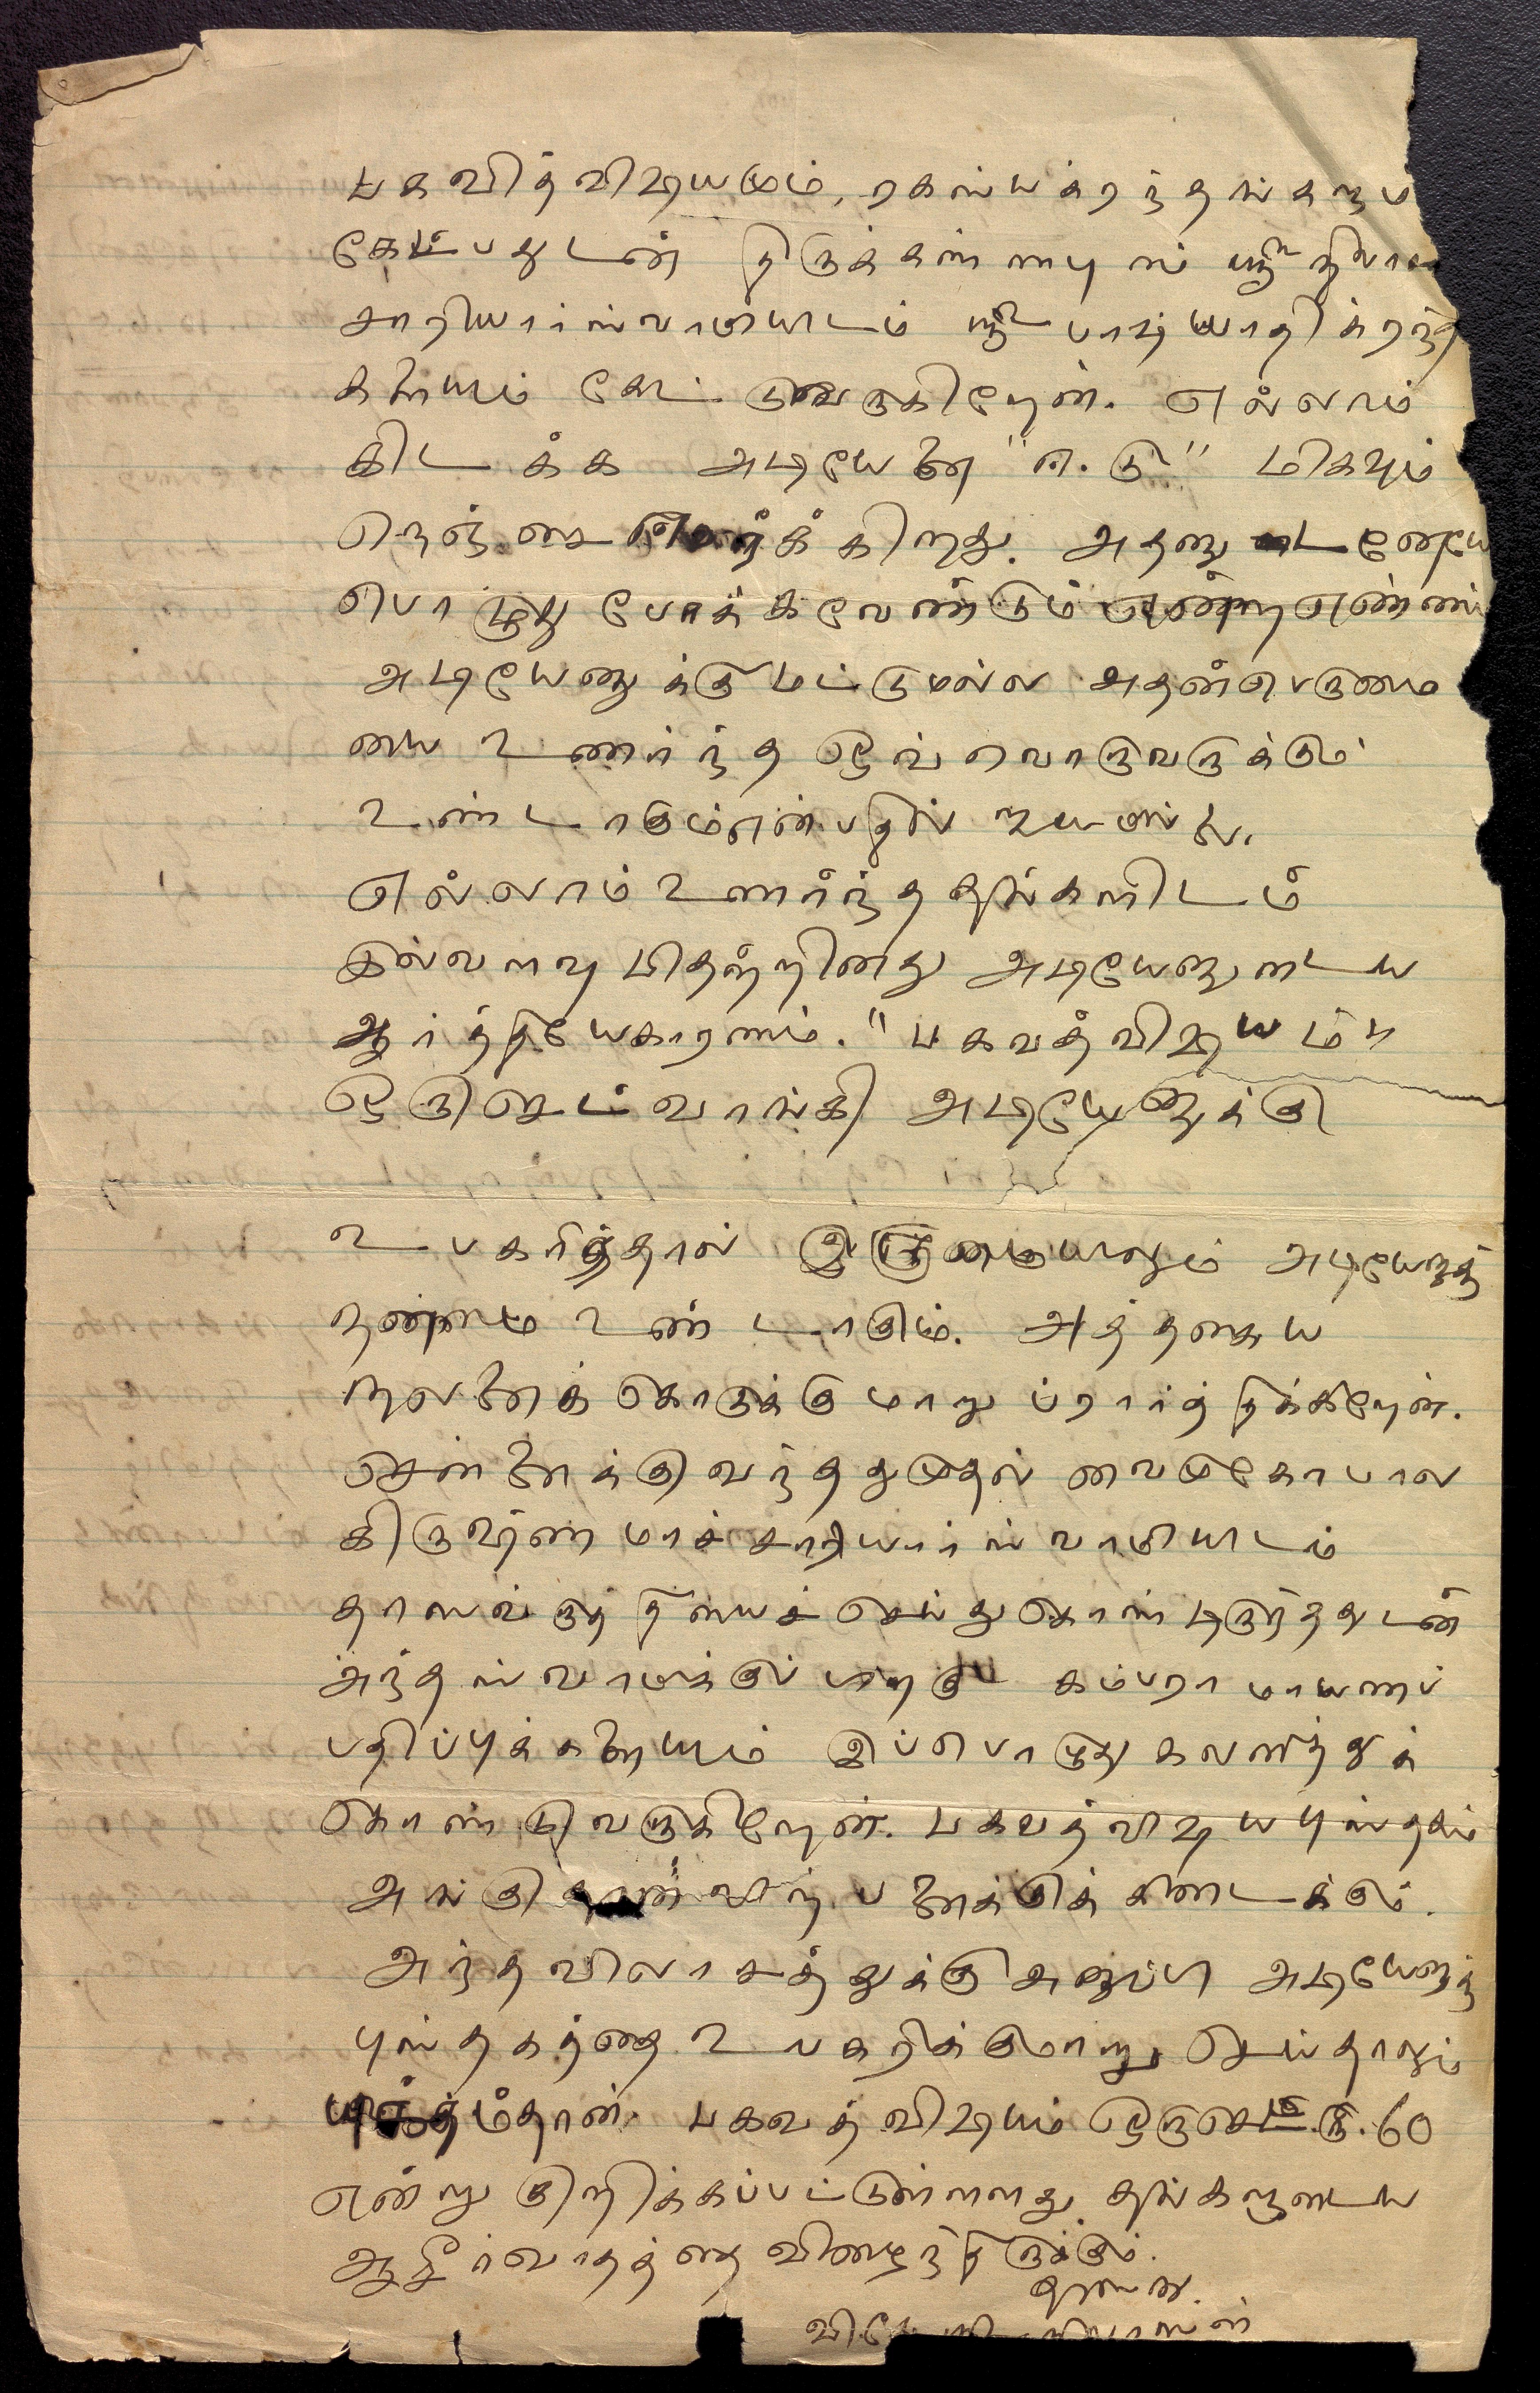 பகவித்விஷயமும், ரகஸ்யக்ரந்தங்களும்
கேட்பதுடன் திருக்கண்ணபுரம் ஸ்ரீ நிவாஸ
சாரியார்ஸ்வாமியிடம் ஸ்ரீ பாஷ்யாதிக்ரந்த
களையும் கேட்டு வருகிறேன். எல்லாம்
கிடக்க அடியேனை "எ.டு" மிகவும்
நெஞ்சை யீர்க்கிறது. அதனுடனேயே
பொழுது போக்கவேண்டும் என்றஎண்ணம்
அடியேனுக்கு மட்டுமல்ல அதன்பெருமை
யை உணர்ந்த ஒவ்வொருவருக்கும்
உண்டாகுமென்பதில் ஐயமில்லை.
எல்லாம் உணர்ந்ததங்களிடம்
இவ்வளவு பிதற்றினது அடியேனுடைய
ஆர்த்தியேகாரணம். "பகவத்விஷயம்"
ஒருசெட் வாங்கி அடியேனுக்கு
உபகரித்தால் இருமையிலும் அடியேனுக்கு
நன்மை உண்டாகும். அத்தகைய
நலனைக் கொடுக்குமாறு ப்ரார்த்திக்கிறேன்.
சென்னைக்கு வந்ததுமுதல் வைமுகோபால
கிருஷ்ணமாச்சாரியார்ஸ்வாமியிடம்
தாஸவ்ருத்தியைச் செய்துகொண்டிருந்ததுடன்
அந்தஸ்வாமிக்குப் பிறகு கம்பராமாயணப்
பதிப்புக்களையும் இப்பொழுது கவனித்துக்
கொண்டுவருகிறேன். பகவத்விஷயபுஸ்தகம்
அங்குதான் விற்பனைக்குக் கிடைக்கும்.
அந்தவிலாசத்துக்கு அனுப்பி அடியேனுக்கு
புஸ்தகத்தை உபகரிக்குமாறு செய்தாலும்
யுக்தம்தான். பகவத்விஷயம் ஒருசெட் ரூ.60
என்று குறிக்கப்பட்டுள்ளது. தங்களுடைய
ஆசீர்வாதத்தை விழைந்திருக்கும்.
தாஸன்.
ஸ்ரீநிவாஸன்